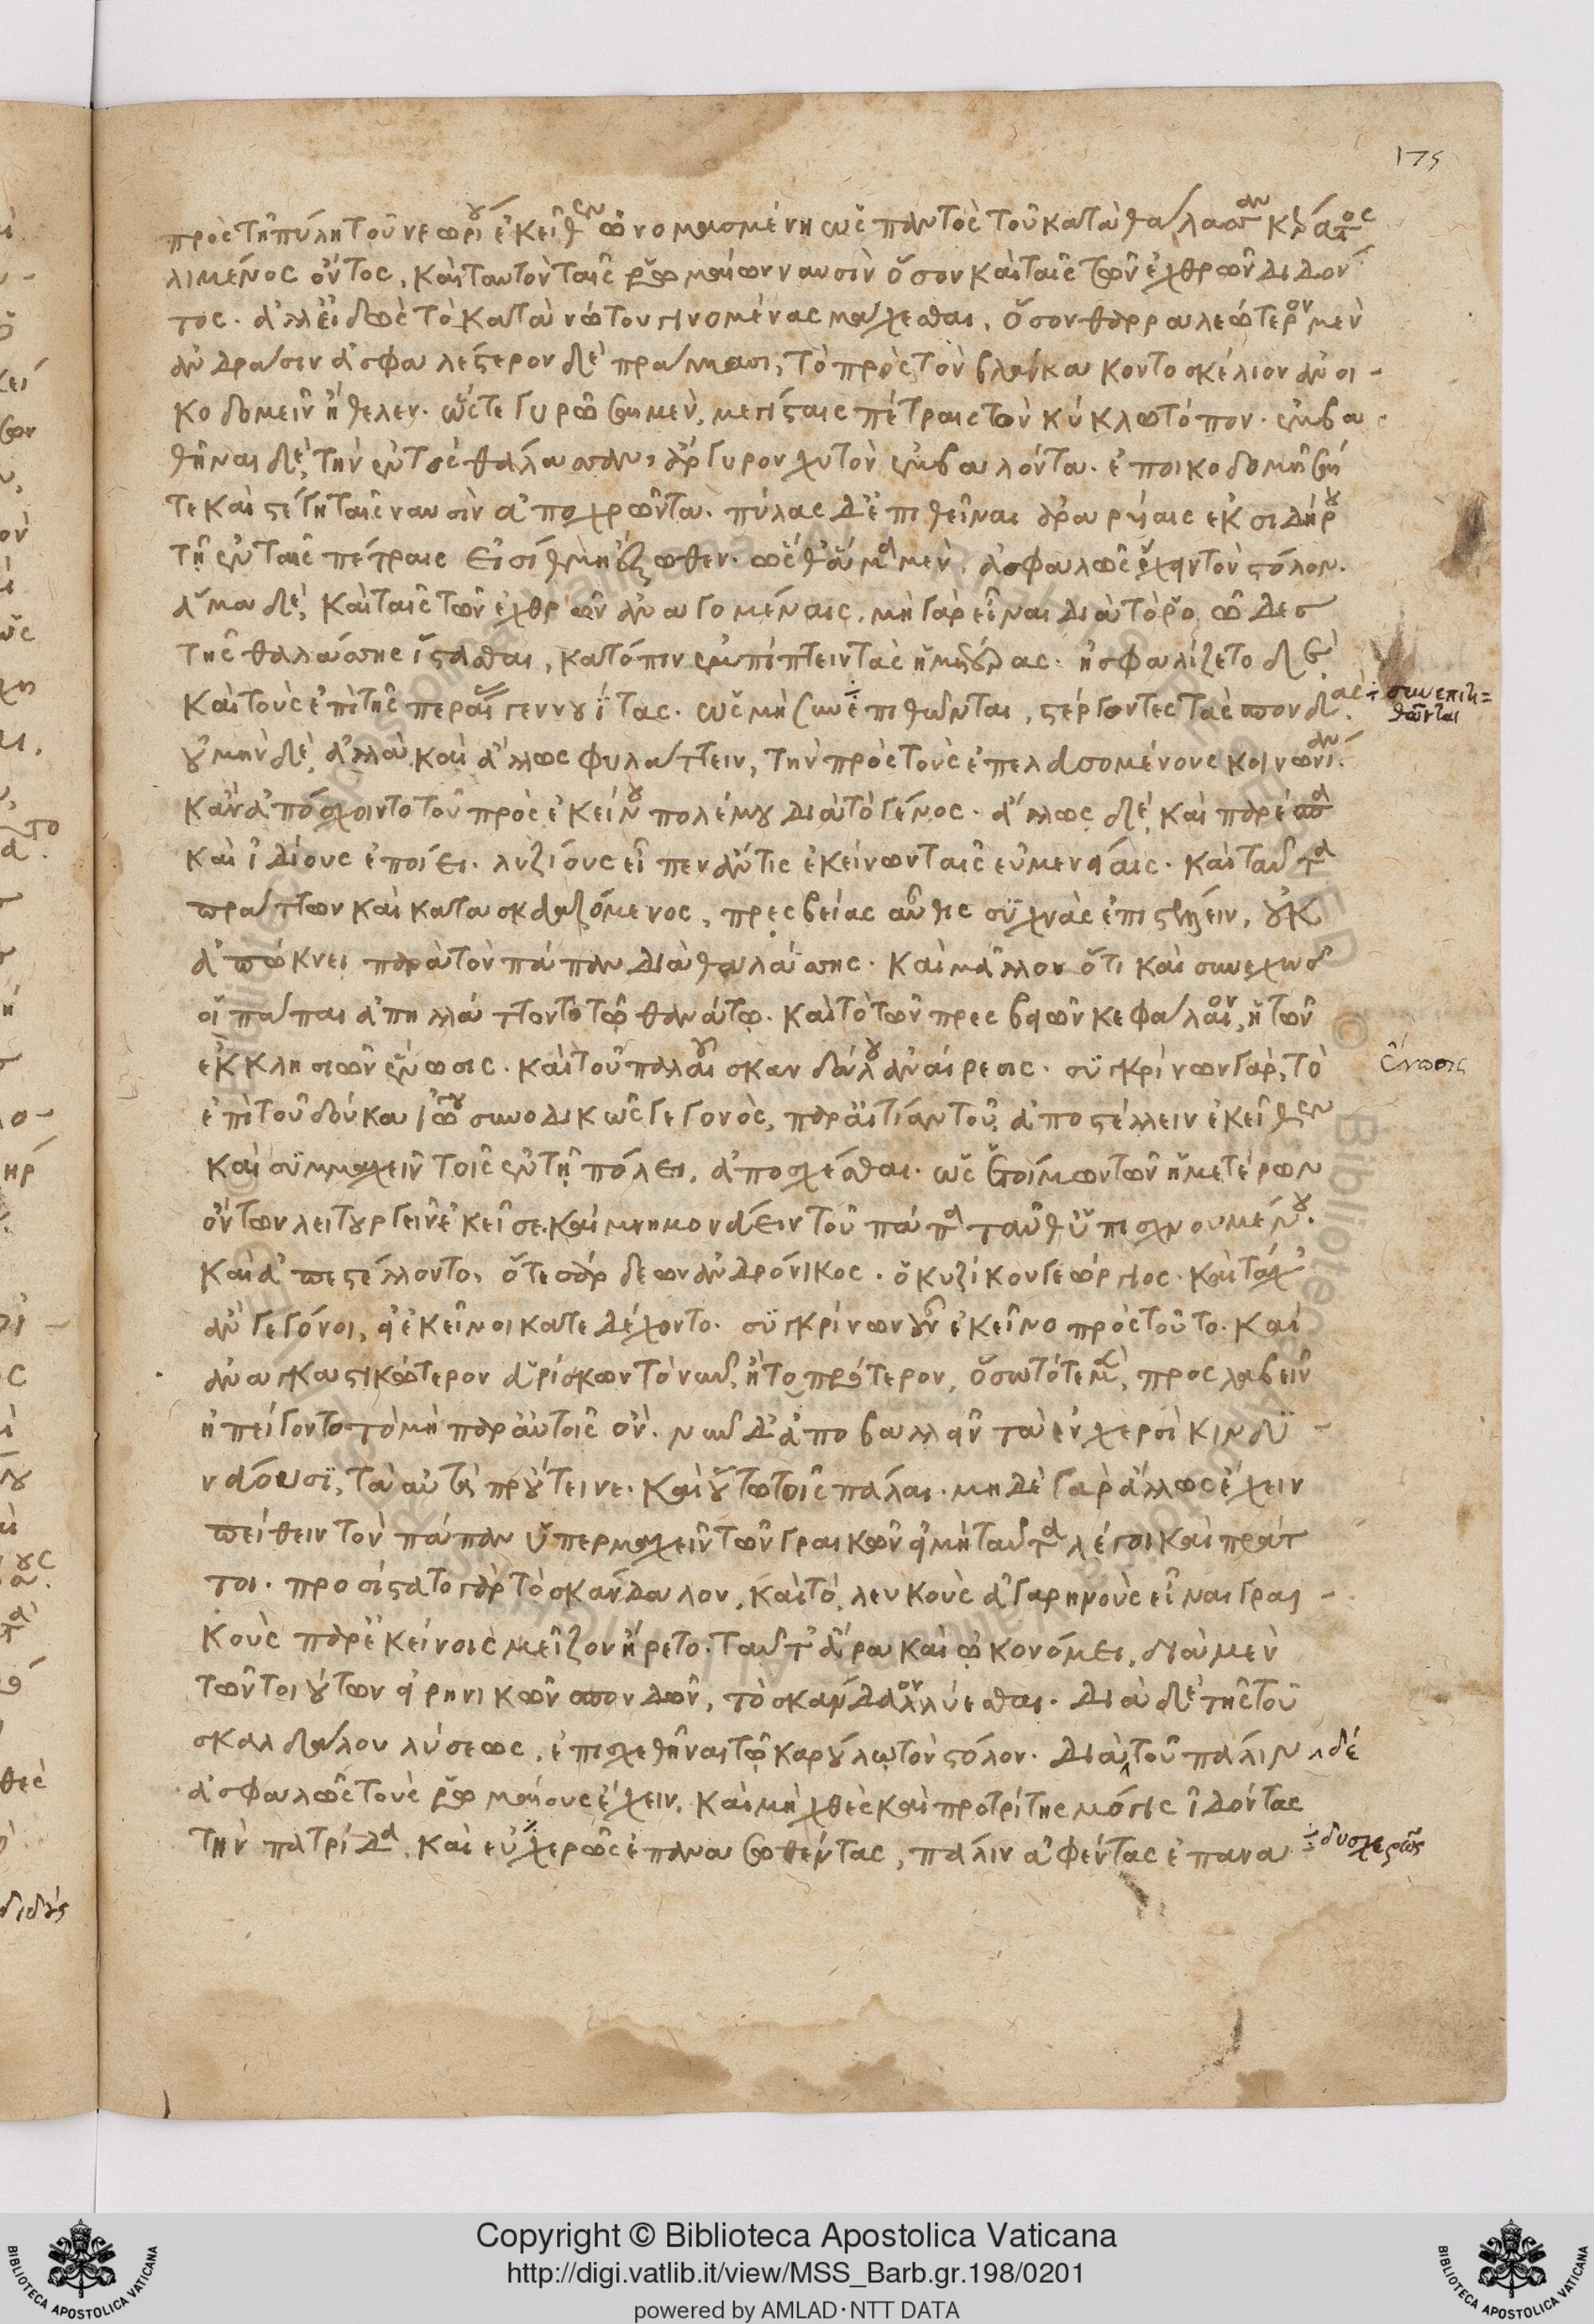 175
πρὸς τῇ πύλῃ τοῦ νεωρίου ἐκεῖθεν ὠνομασμένῃ ὡς παντὸς τοῦ κατὰ θάλασσαν κράτος
λιμένος ὄντος, καὶ ταυτὸν ταῖς ῥωμαίων ναυσὶν ὅσον καὶ ταῖς τῶν ἐχθρῶν διδόν
τος. ἀλλ' εἰδὼς τὸ κατὰ νώτου γινομένας μάχεσθαι, ὅσον θαρραλεώτερον μὲν
ἀνδράσιν ἀσφαλέστερον δὲ πράγμασι, τὸ πρὸς τὸν βλάγκα κοντοσκέλιον ἀνοι-
κοδομεῖν ἤθελεν. ὥστε γυρῶσαι μὲν, μεγίσταις πέτραις τὸν κύκλῳ τόπον. ἐμβα
θῆναι δὲ, τὴν ἐντὸς θάλασσαν, ἄργυρον χυτὸν ἐμβαλόντα. ἐποικοδομῆσαί
τε καὶ στέγη ταῖς ναυσὶν ἀποχρῶντα. πύλας δ' ἐπιθεῖναι ἀραρυίαις ἐκ σιδήρου
τῇ ἐν ταῖς πέτραις εἰσίθμῃ ἔξωθεν. ὡς ἐθ' ἅμα μὲν, ἀσφαλῶς ἔχειν τὸν στόλον.
ἅμα δὲ, καὶ ταῖς τῶν ἐχθρῶν ἀναγομέναις, μὴ γὰρ εἶναι διὰ τὸ ῥοῶδες
τῆς θαλάσσης ἵστασθαι, κατόπιν ἐμπίπτειν τὰς ἡμετέρας. ἠσφαλίζετο δὲ
καὶ τοὺς ἐπὶ τῆς περαίας γεννουΐτας. ὡς μὴ συνεπιθῶνται, στέργοντες τὰς σπονδάς.
÷ συνεπιτι=
θῶνται
οὐ μὴν δὲ, ἀλλὰ καὶ ἄλλως φυλάττειν, τὴν πρὸς τοὺς ἐπελευσομένους κοινωνίαν.
κἂν ἀπόσχοιντο τοῦ πρὸς ἐκείνου πολέμου διὰ τὸ γένος. ἄλλως δὲ, καὶ παρέσπα
καὶ ἰδίους ἐποίει. λυζίους εἶπεν ἄν τις ἐκείνων ταῖς εὐμενείαις. καὶ ταῦτα
πράττων καὶ κατασκευαζόμενος, πρεσβείας αὖθις συχνὰς ἐπιστέλλειν, οὐκ
ἀπώκνει παρὰ τὸν πάπαν διὰ θαλάσσης. καὶ μᾶλλον ὅτι καὶ συνεχῶς
οἱ πάπαι ἀπηλλάττοντο τῷ θανάτῳ. καὶ τὸ τῶν πρεσβειῶν κεφάλαιον, ἡ τῶν
ἐκκλησιῶν ἕνωσις. καὶ τοῦ παλαιοῦ σκανδάλου ἀναίρεσις. συγκρίνων γὰρ, τὸ
ἕνωσις
ἐπὶ τοῦ δούκα ἰωάννου συνοδικῶς γεγονὸς, παραιτίαν τοῦ, ἀποστέλλειν ἐκεῖθεν
καὶ συμμαχεῖν τοῖς ἐν τῇ πόλει, ἀποσχέσθαι. ὡς ἑτοίμων τῶν ἡμετέρων
ὄντων λειτουργεῖν ἐκεῖσε. καὶ μνημονεύειν τοῦ πάπα ταῦθ' ὑπισχνουμένου.
καὶ ἀπεστέλλοντο, ὅ τε σάρδεων ἀνδρόνικος. ὁ κυζίκου γεώργιος. καὶ τάχ'
ἂν γεγόνοι, εἰ ἐκεῖνοι κατεδέχοντο. συγκρίνων οὖν ἐκεῖνο πρὸς τοῦτο. καὶ
ἀναγκαστικώτερον εὑρίσκων τὸ νῦν, ἢ τὸ πρότερον, ὅσῳ τότε μὲν, προσλαβεῖν
ἠπείγοντο τὸ μὴ παρ' αὐτοῖς ὄν. νῦν δ' ἀποβαλλεῖν τὰ ἐν χερσὶ κινδυ-
νεύουσι, τὰ αὐτὰ προύτεινε. καὶ οὕτω τοῖς πάλαι. μηδὲ γὰρ ἄλλως ἔχειν
πείθειν τὸν πάπαν ὑπερμαχεῖν τῶν γραικῶν εἰ μὴ ταῦτα λέγοι καὶ πράτ
τοι. προσίστατο γὰρ τὸ σκάνδαλον, καὶ τό, λευκοὺς ἀγαρηνοὺς εἶναι γραι-
κοὺς παρ' ἐκείνοις μεῖζον ᾔρετο. ταῦτ' ἄρα καὶ ᾠκονόμει, διὰ μὲν
τῶν τοιούτων εἰρηνικῶν σπονδῶν, τὸ σκάνδαλον λύεσθαι. διὰ δὲ τῆς τοῦ
σκανδάλου λύσεως, ἐπισχεθῆναι τῷ καρούλῳ τὸν στόλον. διὰ τοῦ πάλιν ‸δέ
ἀσφαλῶς τοὺς ῥωμαίους ἔχειν, καὶ μὴ χθὲς καὶ προτρίτης μόγις ἰδόντας
τὴν πατρίδα, καὶ εὐχερῶς ἐπανασωθέντας, πάλιν ἀφέντας ἐπανα
÷ δυσχερῶς